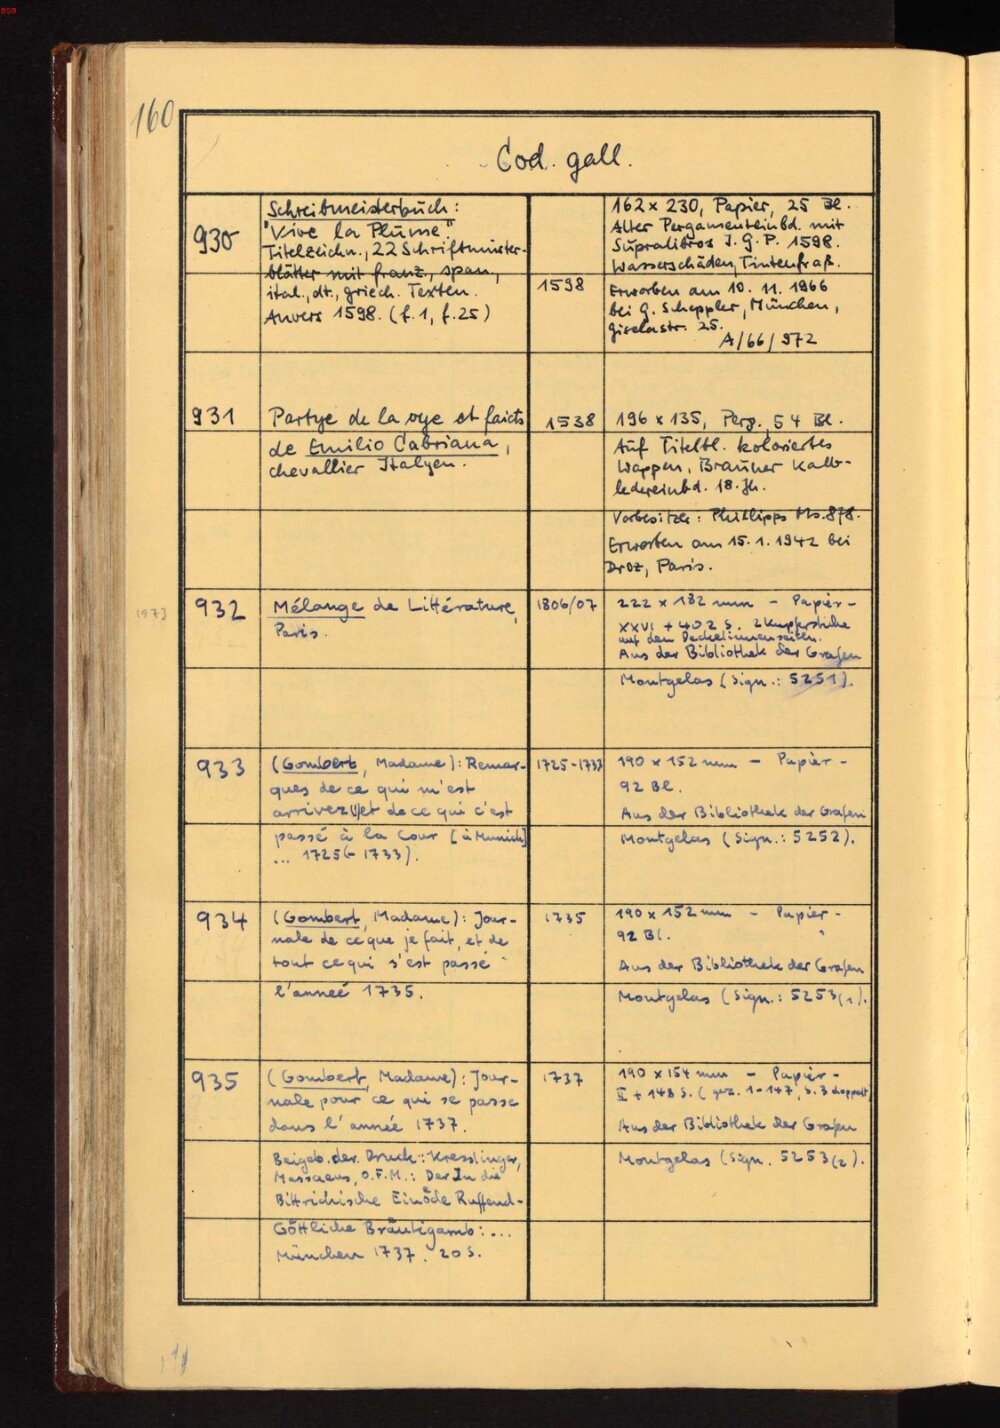 BSB
160
Cod. gall.
930
Schreibmeisterbuch:
"Vive la Plume".
Titelzeichn., 22 Schriftmuster-
blätter mit franz., span.,
ital., dt., griech. Texten.
Anvers 1598. (f. 1, f. 25)
1598
162 x 230, Papier, 25 Bl.
Alter Pergamenteinbd. mit
Supralibros J. G. P. 1598.
Wasserschäden, Tintenfraß.
Erworben am 10. 11. 1966
bei G. Scheppler, München,
Giselastr. 25.
A/66/972
931
Partye de la vye et faicts
de Emilio Cabriana,
chevallier Italyen.
1538
196 x 135, Perg., 54 Bl.
Auf Titelbl. koloriertes
Wappen, Brauner Kalb-
ledereinbd. 18. Jh.
Vorbesitzer: Phillipps Ms. 878.
Erworben am 15. 1. 1942 bei
Droz, Paris.
1973
932
Mélange de Littérature,
Paris.
1806/07
222 x 132 mm - Papier -
XXVI + 402 S. 2 Kupferstiche
auf den Deckelinnenseiten.
Aus der Bibliothek der Grafen
Montgelas (Sign.: 5251).
933
(Gombert, Madame): Remar-
ques de ce qui m'est
arrivez(!) et de ce qui c'est
passé à la Cour [à Munich]
... 1725(-1733).
1725-1733
190 x 152 mm - Papier -
92 Bl.
Aus der Bibliothek der Grafen
Montgelas (Sign.: 5252).
934
(Gombert, Madame): Jour-
nale de ce que je fait, et de
tout ce qui s'est passé
l'anneé 1735.
1735
190 x 152 mm - Papier -
92 Bl.
Aus der Bibliothek der Grafen
Montgelas (Sign.: 5253(1).
935
(Gombert, Madame): Jour-
nale pour ce qui se passe
dans l'année 1737.
Beigeb. der Druck: Kresslinger,
Massaeus, O.F.M.: Der In die
Bittrichische Einöde Ruffend-
Göttliche Bräutigamb: ...
München 1737. 20 S.
1737
190 x 154 mm - Papier -
II + 148 S. (gez. 1-147, S. 3 doppelt)
Aus der Bibliothek der Grafen
Montgelas (Sign. 5253(2).